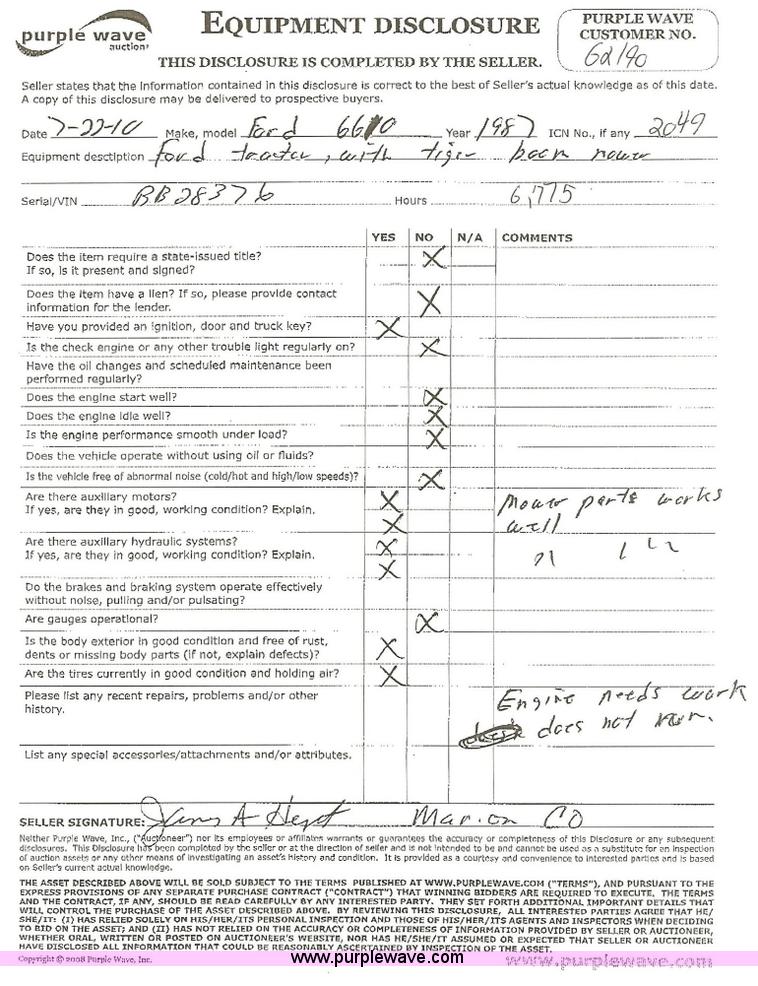 purple wave
auction®
EQUIPMENT DISCLOSURE
THIS DISCLOSURE IS COMPLETED BY THE SELLER.
PURPLE WAVE
CUSTOMER NO.
62190
Seller states that the information contained in this disclosure is correct to the best of Seller's actual knowledge as of this date.
A copy of this disclosure may be delivered to prospective buyers.
Date 7-22-10 Make, model Ford 6610 Year 1987 ICN No., if any 2049
Equipment description Ford tractor, with tiger boom mower
Serial/VIN BB28376 Hours 6,775
YES NO N/A COMMENTS
Does the item require a state-issued title? X
If so, is it present and signed?
Does the item have a lien? If so, please provide contact X
information for the lender.
Have you provided an ignition, door and truck key? X
Is the check engine or any other trouble light regularly on? X
Have the oil changes and scheduled maintenance been
performed regularly?
Does the engine start well? X
Does the engine idle well? X
Is the engine performance smooth under load? X
Does the vehicle operate without using oil or fluids?
Is the vehicle free of abnormal noise (cold/hot and high/low speeds)? X
Are there auxiliary motors? X Mower parts works
If yes, are they in good, working condition? Explain. X well
Are there auxiliary hydraulic systems? X
If yes, are they in good, working condition? Explain. X
Do the brakes and braking system operate effectively
without noise, pulling and/or pulsating?
Are gauges operational? X
Is the body exterior in good condition and free of rust, X
dents or missing body parts (if not, explain defects)?
Are the tires currently in good condition and holding air? X
Please list any recent repairs, problems and/or other Engine needs work
history. does not run.
List any special accessories/attachments and/or attributes.
SELLER SIGNATURE: Marion CO
Neither Purple Wave, Inc., ("Auctioneer") nor its employees or affiliates warrants or guarantees the accuracy or completeness of this Disclosure or any subsequent
disclosures. This Disclosure has been completed by the seller or at the direction of seller and is not intended to be and cannot be used as a substitute for an inspection
of auction assets or any other means of investigating an asset's history and condition. It is provided as a courtesy and convenience to interested parties and is based
on Seller's current actual knowledge.
THE ASSET DESCRIBED ABOVE WILL BE SOLD SUBJECT TO THE TERMS PUBLISHED AT WWW.PURPLEWAVE.COM ("TERMS"), AND PURSUANT TO THE
EXPRESS PROVISIONS OF ANY SEPARATE PURCHASE CONTRACT ("CONTRACT") THAT WINNING BIDDERS ARE REQUIRED TO EXECUTE. THE TERMS
AND THE CONTRACT, IF ANY, SHOULD BE READ CAREFULLY BY ANY INTERESTED PARTY. THEY SET FORTH ADDITIONAL IMPORTANT DETAILS THAT
WILL CONTROL THE PURCHASE OF THE ASSET DESCRIBED ABOVE. BY REVIEWING THIS DISCLOSURE, ALL INTERESTED PARTIES AGREE THAT HE/
SHE/IT: (I) HAS RELIED SOLELY ON HIS/HER/ITS PERSONAL INSPECTION AND THOSE OF HIS/HER/ITS AGENTS AND INSPECTORS WHEN DECIDING
TO BID ON THE ASSET; AND (II) HAS NOT RELIED ON THE ACCURACY OR COMPLETENESS OF INFORMATION PROVIDED BY SELLER OR AUCTIONEER,
WHETHER ORAL, WRITTEN OR POSTED ON AUCTIONEER'S WEBSITE, NOR HAS HE/SHE/IT ASSUMED OR EXPECTED THAT SELLER OR AUCTIONEER
HAVE DISCLOSED ALL INFORMATION THAT COULD BE REASONABLY ASCERTAINED BY INSPECTION OF THE ASSET.
Copyright © 2008 Purple Wave, Inc.
www.purplewave.com
www.purplewave.com